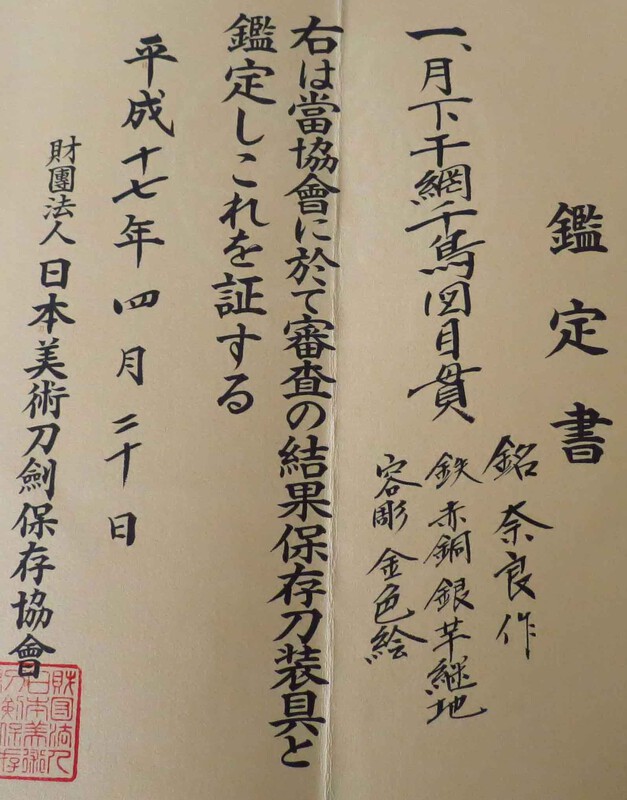 鑑定書
一、月下干網千鳥図目貫
銘 奈良作
鉄赤銅銀芋継地
容彫 金色絵
右は當協會に於て審査の結果保存刀装具と
鑑定しこれを証する
平成十七年四月二十日
財團法人日本美術刀劍保存協會